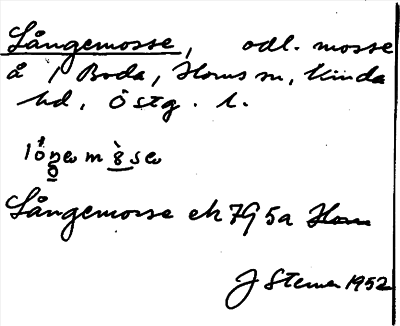 Långemosse, odl. mosse
å 1 Boda, Horns sn, Kinda
hd, Östg. l.
Långemosse ek 79 5a Horn
J Stener 1952